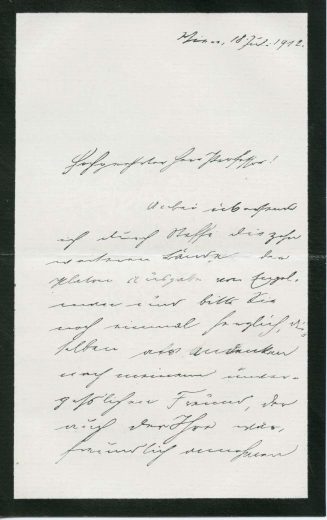 Wien, 18. Jul. 1912.
Hochgeehrter Herr Professor!
Anbei übersende
ich durch Neffe die zehn
weiteren Bände der
Platon Ausgabe von Engel-
mann und bitte Sie
noch einmal herzlich, die-
selben als Andenken
nach meinem unver-
geßlichen Freund, der
auch der Ihre war,
freundlich annehmen